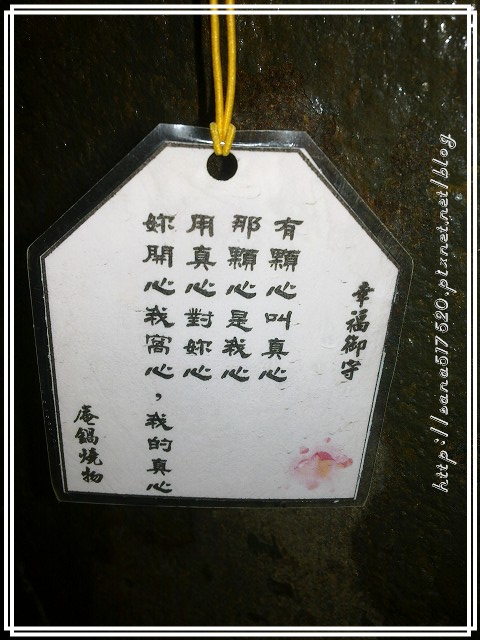 幸福御守
有顆心叫真心
那顆心是我心
用真心對妳心
妳開心我窩心，我的真心
庵鍋燒物
http://sana517520.pixnet.net/blog